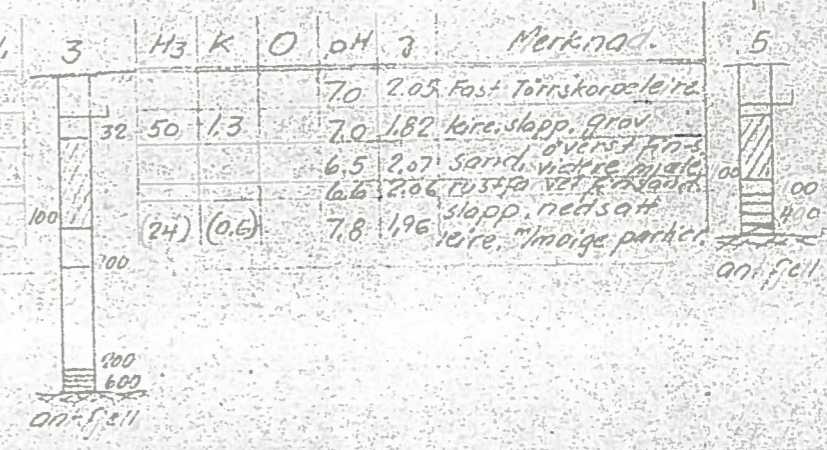 3 H3 K O pH γ Merknad. 5
7.0 2.05 Fast Törrskorpeleire
32 50 1.3 7.0 1.82 kore. slapp. grov
6.5 2.07 sand, överst fin-s
videre mjæle
6.6 2.06 rustfarvet finsand.
100 (24) (0.6) 7.8 1.96 slapp. nedsatt
leire, m/moige partier.
100
200
600
ant. fjell
00
00
400
ant. fjell